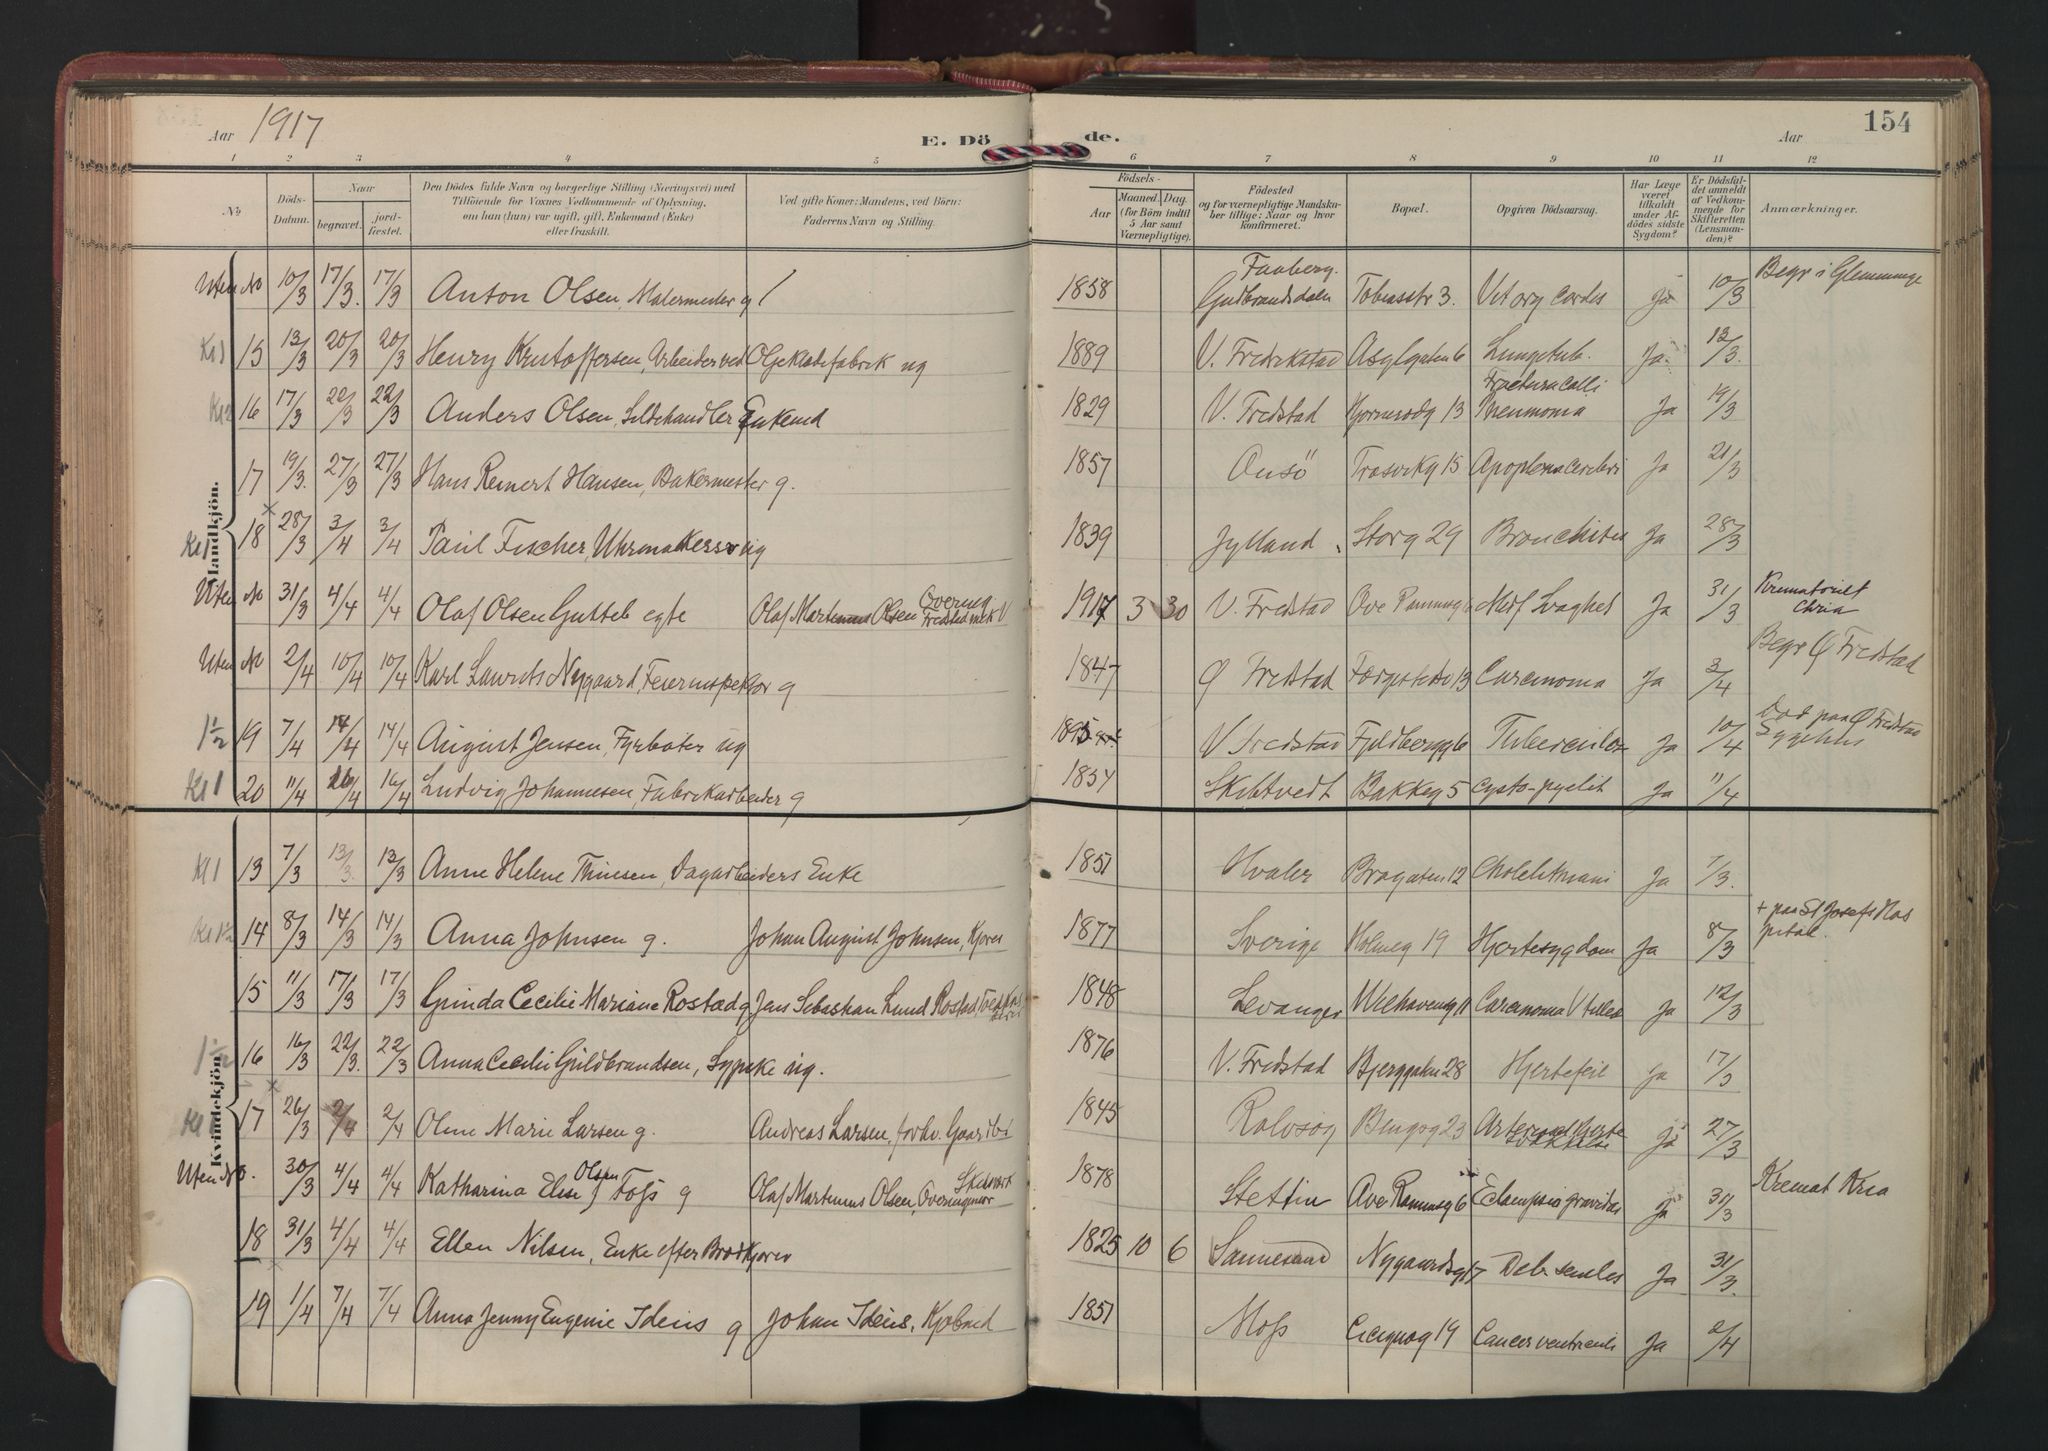 Aar 1917
E. Dö de.
Aar
154
1 2 3 4 5 6 7 8 9 10 11 12
No
Döds-Datum.
Naar
begravet.
jord-fæstet.
Den Dödes fulde Navn og borgerlige Stilling (Næringsvei) med
Tilföiende for Voxnes Vedkommende af Oplysning,
om han (hun) var ugift, gift, Enkemand (Enke)
eller fraskilt.
Ved gifte Koner: Mandens, ved Börn:
Faderens Navn og Stilling.
Födsels-
Aar
Maaned. Dag.
(for Börn indtil
5 Aar samt
Værnepligtige).
Födested
og for værnepligtige Mandska-
ber tillige: Naar og hvor
konfirmeret.
Bopæl.
Opgiven Dödsaarsag.
Har Læge
været
tilkaldt
under Af-
dödes sidste
Sygdom?
Er Dödsfal-
det anmeldt
af Vedkom-
mende for
Skifteretten
(Lensman-
den)?
Anmærkninger.
Mandkjön.
Uten No 10/3 17/3. 17/3 Anton Olsen, Malermester g / 1858 Faaberg. Gudbrandsdalen Tobiasstr 3. Vit org cordis ja 10/3 Begr i Glemminge
Kl 1 15 13/3 20/3 20/3 Henry Kristoffersen, Arbeider ved Oljeklædefabrik ug 1889 V. Fredrikstad Asylgaten 6 Lungetub. Ja 13/3.
Kl 2 16 17/3 22/3 22/3 Anders Olsen, Sildehandler Enkemd 1829 V. Fredstad 13 Fractura colli Pneumonia Ja 19/3
17 19/3. 27/3 27/3 Hans Reinert Hansen, Bakermester g. 1857 Onsö Trosvikg 15 Apoplexia cerebri Ja 21/3
Kl 1 18 28/3 3/4 3/4 Paul Fischer, Uhrmakersv ug 1839 Jylland Storg 29 Bronchites Ja 28/3
Uten No 31/3 4/4 4/4 Olaf Olsen Gutteb egte Olaf Martinus Olsen Overing Fredstad mek V 1917 3 30 V. Fredstad Ove Rammsg 6 Medf Svaghet Ja 31/3 Krematoriet Chria
Uten No 2/4 10/4 10/4 Karl Laurits Nygaard, Feierinspektor g 1847 Ø Fredstad Færgestedv 13 Carcinoma Ja 3/4 Begr Ø Fredstad
1 1/2 19 7/4 14/4 14/4 August Jensen, Fyrböter ug 1895 V Fredstad Fjeldbergg 6 Tuberculose Ja 10/4 Död paa Ø Fredstad Sygehus
Kl 1 20 11/4 16/4 16/4 Ludvig Johannesen, Fabrikarbeider g 1857 Skibtvedt Bakkeg 5 Cysto-pyelit Ja 11/4
Kvindekjön.
Kl 1 13 7/3 13/3. 13/3 Anne Helene Thinesen, Dagarbeiders Enke 1851 Hvaler Brogaten 12 Ja 7/3.
Kl 1 1/2 14 8/3 14/3 14/3 Anna Johnsen g. Johan August Johnsen, Kjörer 1877 Sverige Holmeg 19 Hjertesygdom Ja 8/3 + paa St Josefs Hospital.
15 11/3 17/3 17/3 Gunda Cecilie Mariane Rostad g Jens Sebastian Lund Rostad, 1848 Levanger Welhavensg 11 Carcinoma Ja 12/3
1 1/2 16 16/3 22/3. 22/3 Anna Cecilie Guldbrandsen, Sypike ug. 1876 V. Fredstad Bjerggaten 28 Hjertefeil Ja 17/3
Kl 1 17 26/3 2/4 2/4 Oline Marie Larsen g. Andreas Larsen, forhv. Gaardbr 1845 Rolvsöy 23 ja 27/3
Uten No. 30/3 4/4 4/4 Katharina Elise Olsen f Foss g Olaf Martinus Olsen, Overingeniør 1878 Stettin Ove Rammsg 6 Eclampsia graviditas ja 31/3 Kremat Kria
18 31/3 4/4 4/4 Ellen Nilsen, Enke efter Brödkjörer 1825 10 6 Sannesund Nygaardsg 17 Deb. senilis Ja 31/3.
19 1/4 7/4 7/4 Anna Jenny Eugenie Ideus g Johan Ideus, Kjöbmd 1851 Moss Cicignog 19 Cancer ventriculi Ja 2/4